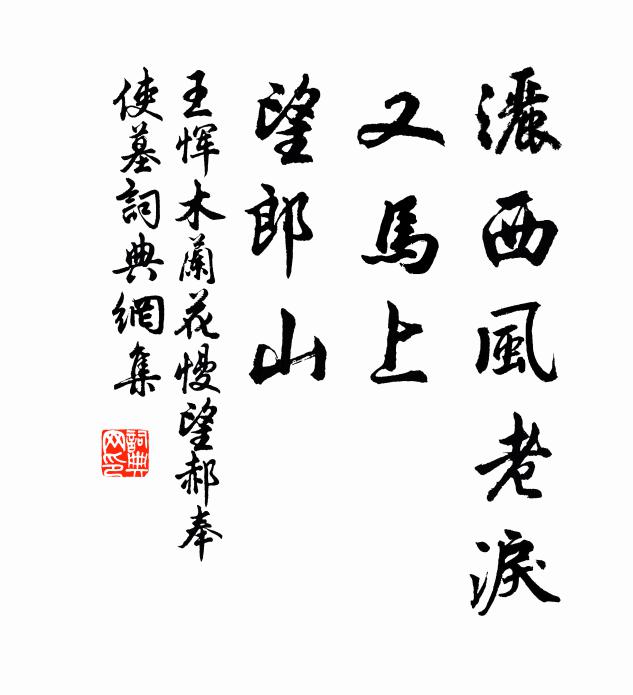 灑西風老淚
又馬上
望郎山
王惲木蘭花慢望郝奉
使墓詞典網集
詞典
网印